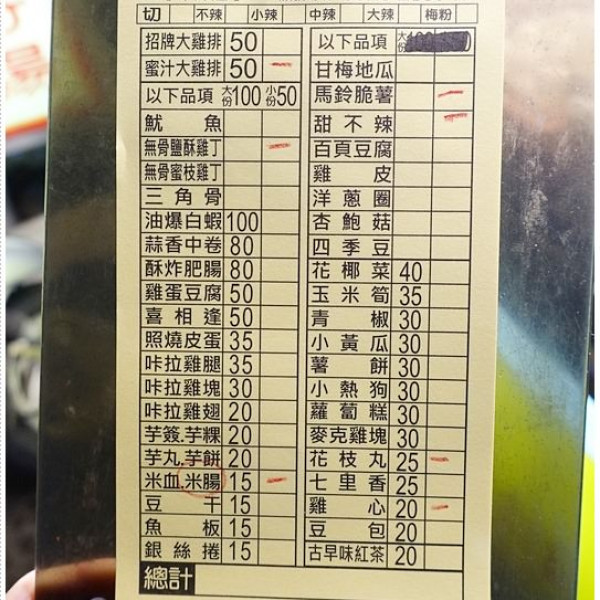 切 不辣 小辣 中辣 大辣 梅粉
招牌大雞排 50
蜜汁大雞排 50
以下品項 大份100 小份50
魷魚
無骨鹽酥雞丁
無骨蜜枝雞丁
三角骨
油爆白蝦 100
蒜香中卷 80
酥炸肥腸 80
雞蛋豆腐 50
喜相逢 50
照燒皮蛋 35
咔拉雞腿 35
咔拉雞塊 30
咔拉雞翅 20
芋簽.芋粿 20
芋丸.芋餅 20
米血.米腸 15
豆干 15
魚板 15
銀絲捲 15
總計
以下品項 大份
甘梅地瓜
馬鈴脆薯
甜不辣
百頁豆腐
雞皮
洋蔥圈
杏鮑菇
四季豆
花椰菜 40
玉米筍 35
青椒 30
小黃瓜 30
薯餅 30
小熱狗 30
蘿蔔糕 30
麥克雞塊 30
花枝丸 25
七里香 25
雞心 20
豆包 20
古早味紅茶 20